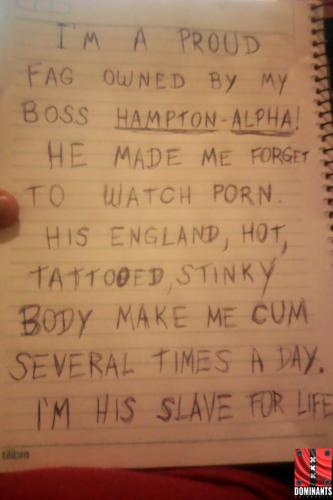 I'M A PROUD
FAG OWNED BY MY
BOSS HAMPTON-ALPHA!
HE MADE ME FORGET
TO WATCH PORN.
HIS ENGLAND, HOT,
TATTOOED, STINKY
BODY MAKE ME CUM
SEVERAL TIMES A DAY.
I'M HIS SLAVE FOR LIFE
tilibra
XXX
DOMINANTS